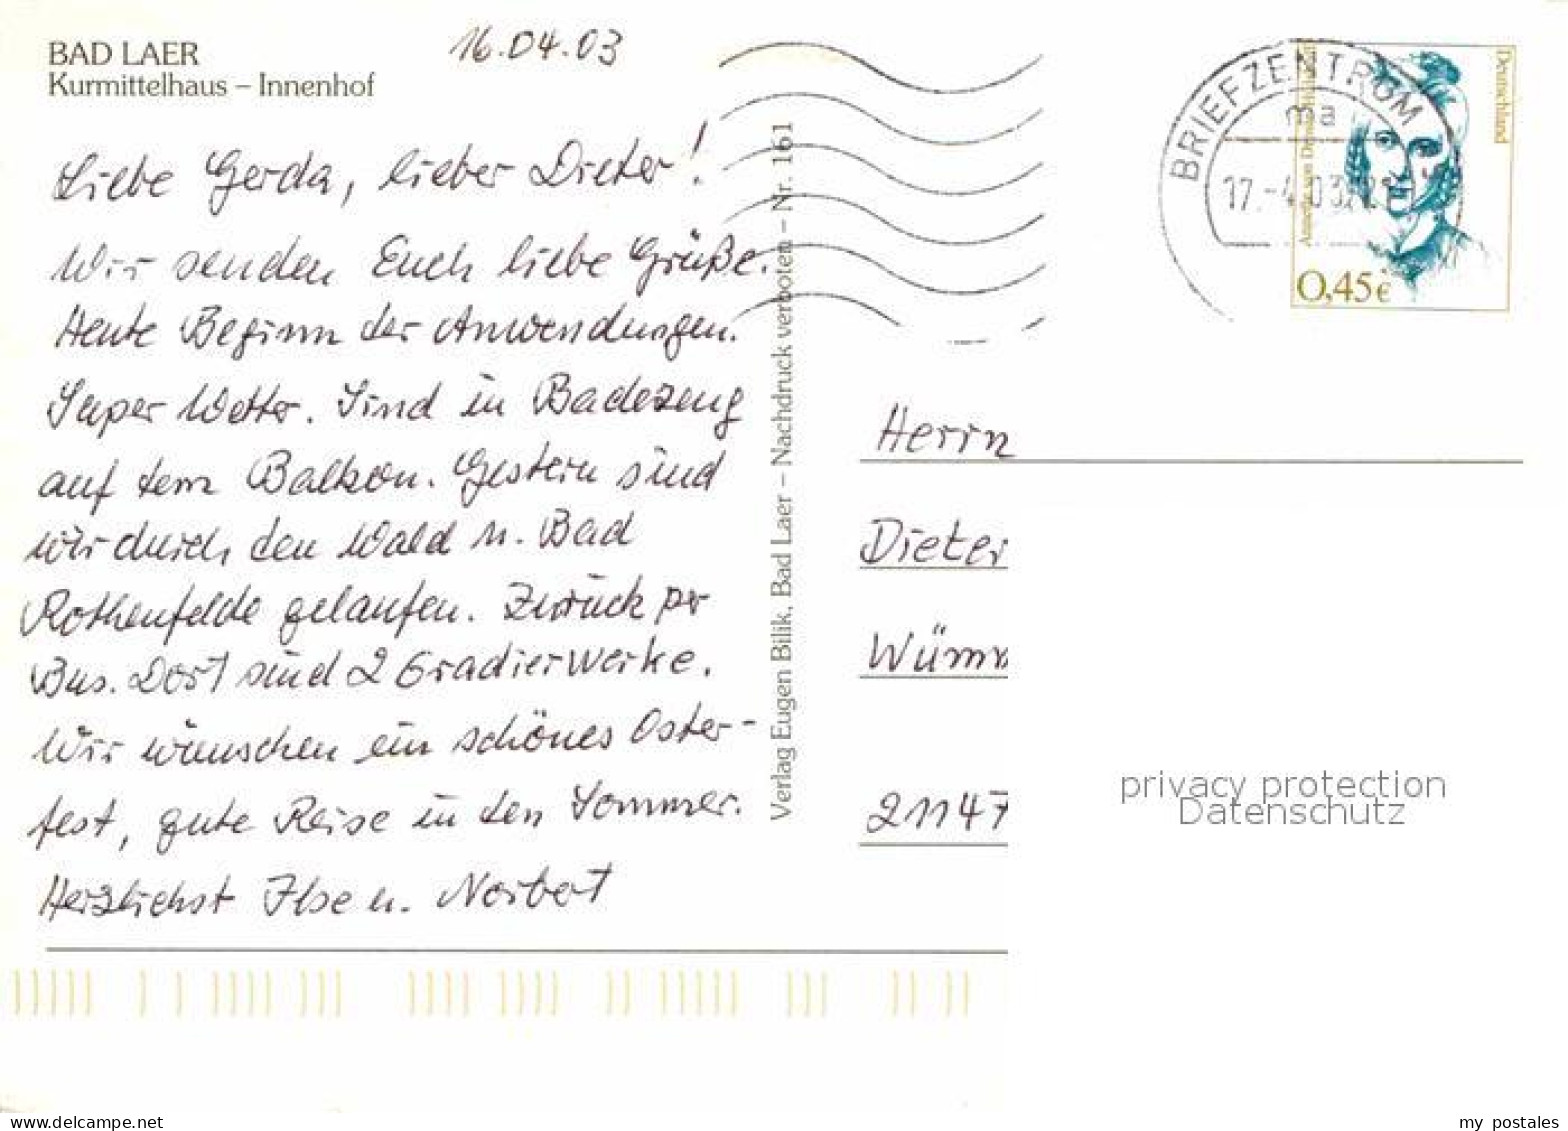 BAD LAER
Kurmittelhaus – Innenhof
16.04.03
Liebe Gerda, lieber Dieter!
Wir senden Euch liebe Grüße.
Heute Beginn der Anwendungen.
Super Wetter. Sind in Badezeug
auf dem Balkon. Gestern sind
wir durch den Wald n. Bad
Rothenfelde gelaufen. Zurück per
Bus. Dort sind 2 Gradierwerke.
Wir wünschen ein schönes Oster-
fest, gute Reise in den Sommer.
Herzlichst Ilse u. Norbert
Verlag Eugen Bilik, Bad Laer – Nachdruck verboten – Nr. 161
BRIEFZENTRUM
ma
17.-4.03
Deutschland
0,45€
Herrn
Dieter
21147
privacy protection
Datenschutz
www.delcampe.net
my_postales